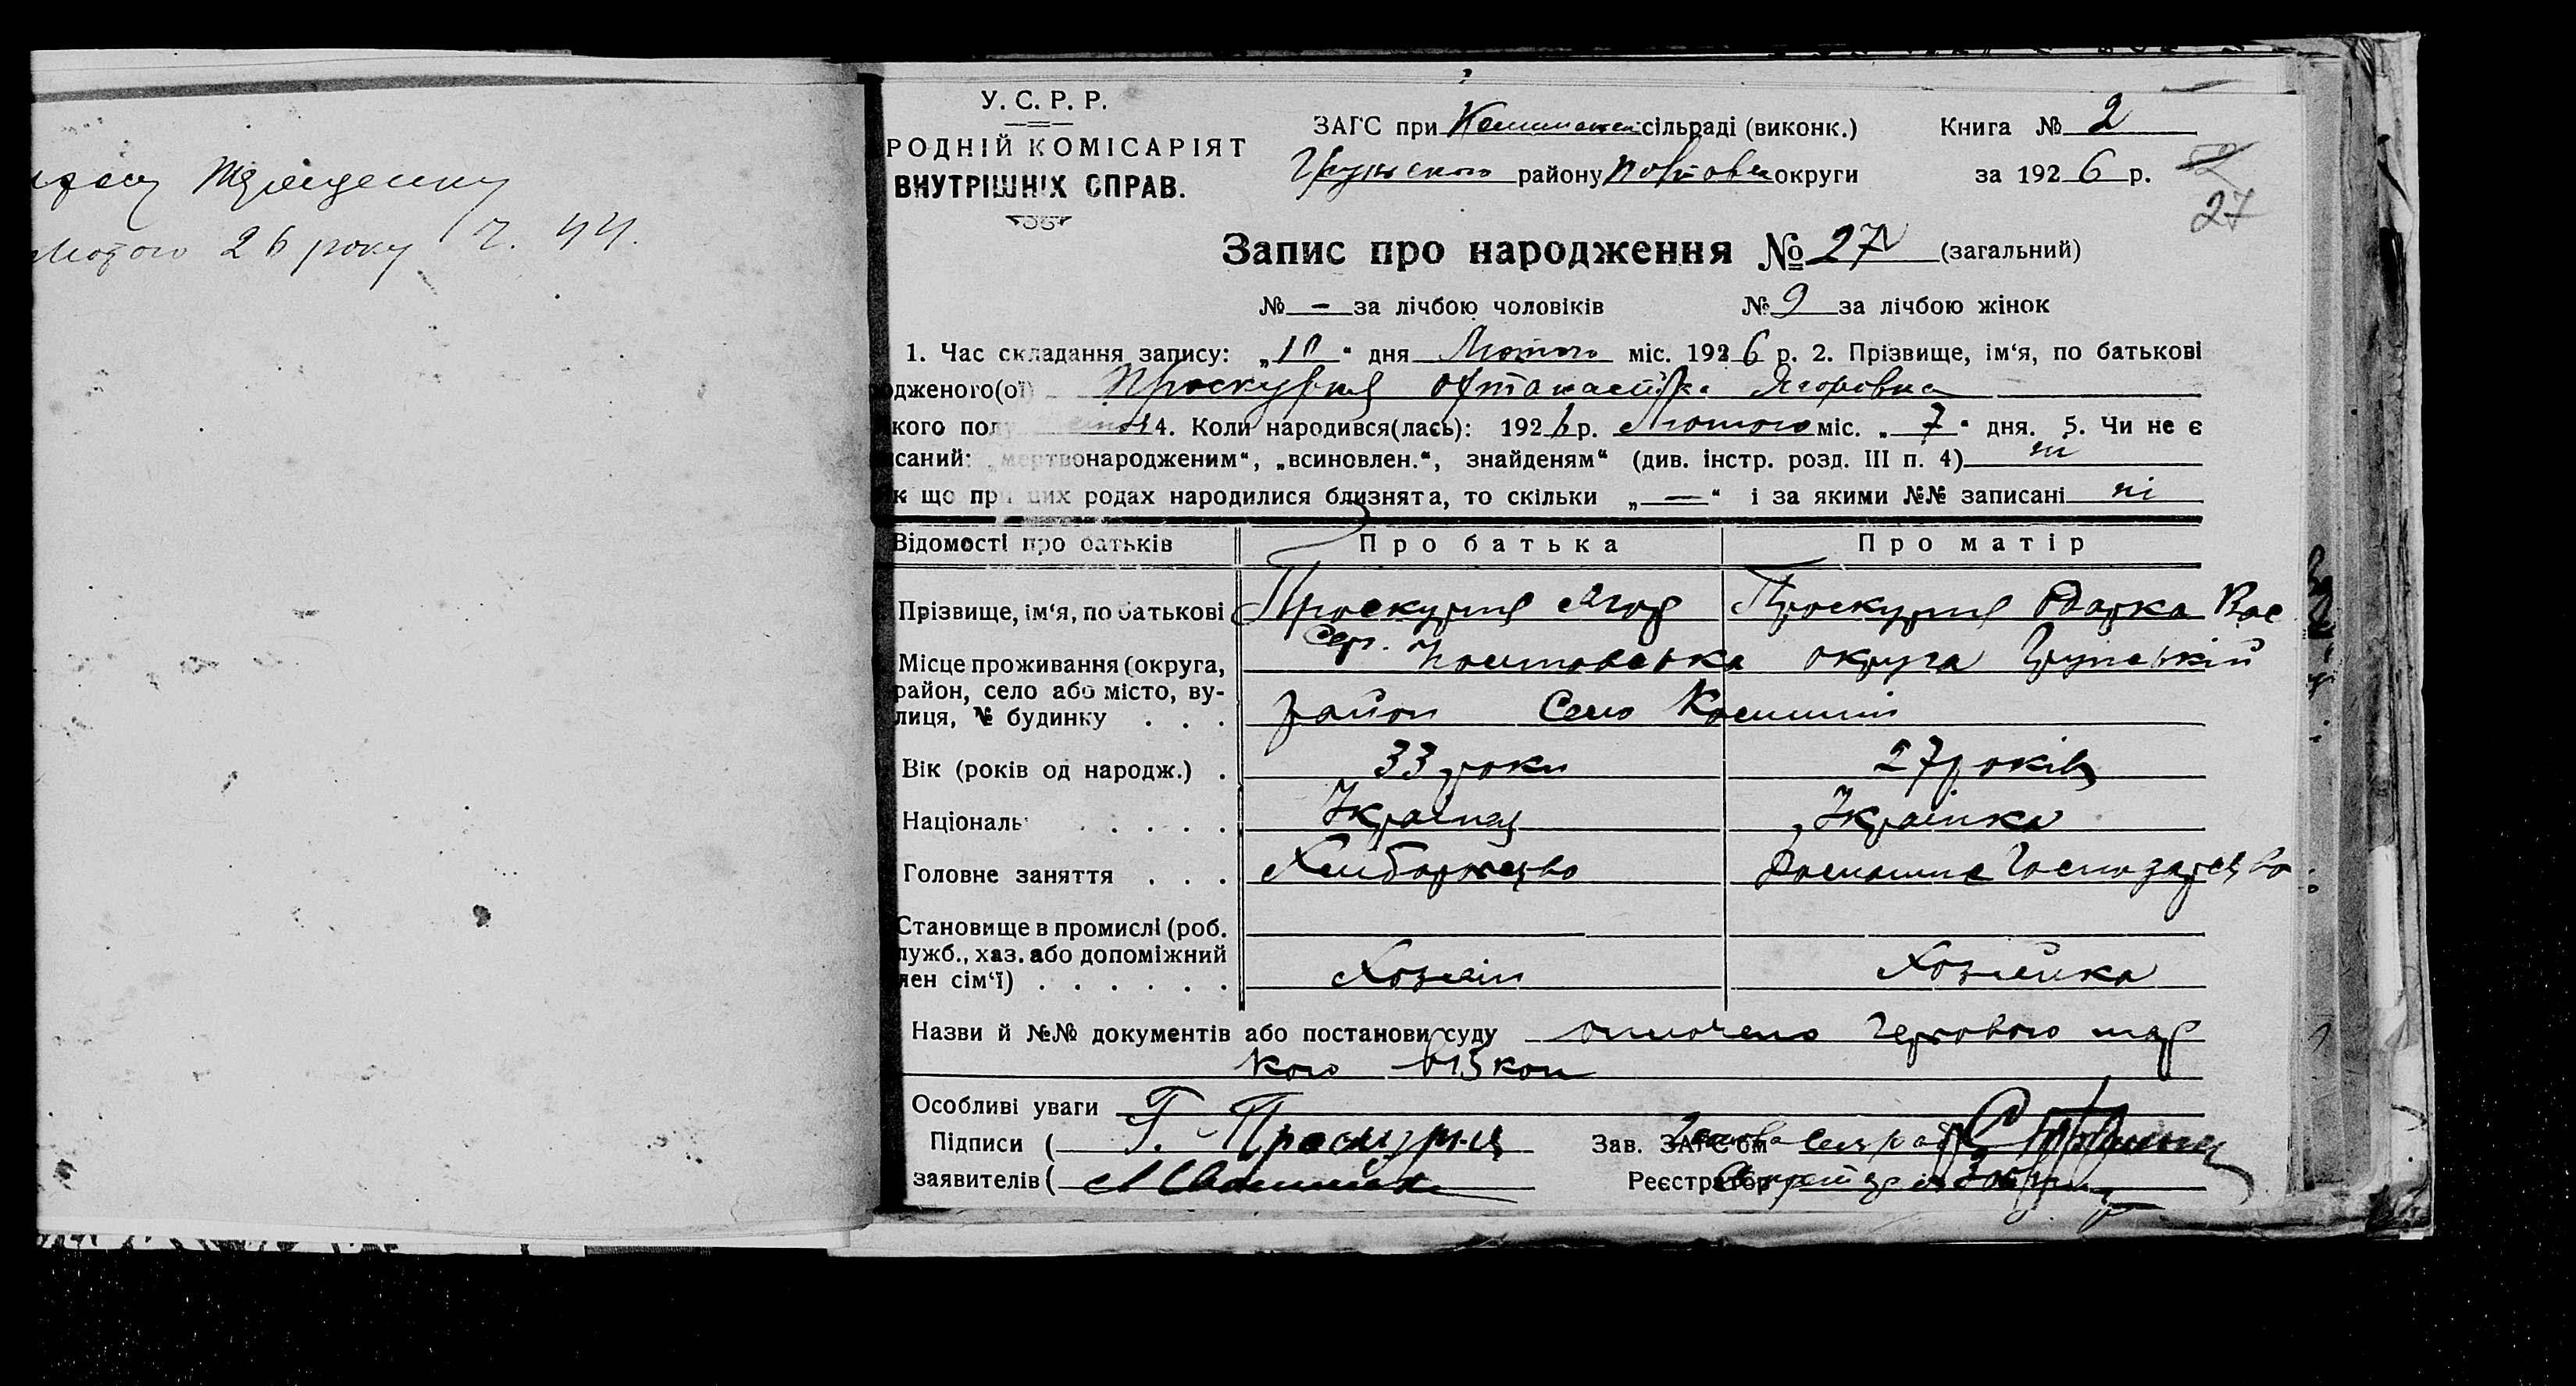 Лютого 26 року Ч. 44.
У. С. Р. Р.
РОДНІЙ КОМІСАРІЯТ
ВНУТРІШНІХ СПРАВ.
ЗАГС при сільраді (виконк.) Книга № 2
району округи за 1926 р.
27
Запис про народження № 27 (загальний)
№ — за лічбою чоловіків № 9 за лічбою жінок
1. Час складання запису: „10“ дня Лютого міс. 1926 р. 2. Прізвище, ім‘я, по батькові
одженого(ої) Проскурня Ягоровна
кого пол 4. Коли народився(лась): 1926 р. Лютого міс. „7“ дня. 5. Чи не є
исаний: „мертвонародженим“, „всиновлен.“, знайденям“ (див. інстр. розд. III п. 4) ні
к що при цих родах народилися близнята, то скільки „—“ і за якими №№ записані ні
Відомості про батьків Про батька Про матір
Прізвище, ім‘я, по батькові Проскурня Ягор Проскурня Одарка Вас
Сер.
Місце проживання (округа, округа Грунський
район, село або місто, ву-
лиця, № будинку . . . район Село
Вік (років од народж.) . 33 роки 27 років
Національ . . . . . Українец Українка
Головне заняття . . . Хліборобство Домашнє Господарство
Становище в промислі (роб.
лужб., хаз. або допоміжний
лен сім‘ї) . . . . . . Хозяїн Хозяйка
Назви й №№ документів або постанови суду оплочено гербового мар
кого в 15 коп
Особливі уваги
Підписи ( Г. Проскурня Зав. ЗАГС‘ом Голова сільради
заявителів ( Реєстратор Секретарь